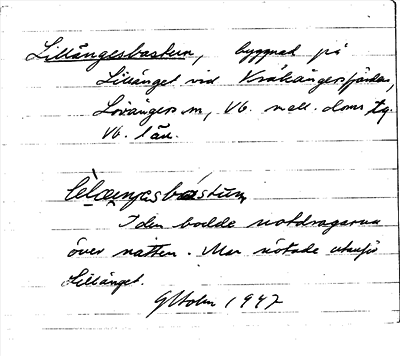 Lillängesbastun, byggnad på
Lillänget vid Kråkångersfjärden,
Lövångers sn, Vb. n. all. doms. tg.
Vb. län.
I den bodde notdragarna
över natten. Man nötade utanför
Lillänget.
G Holm 1947